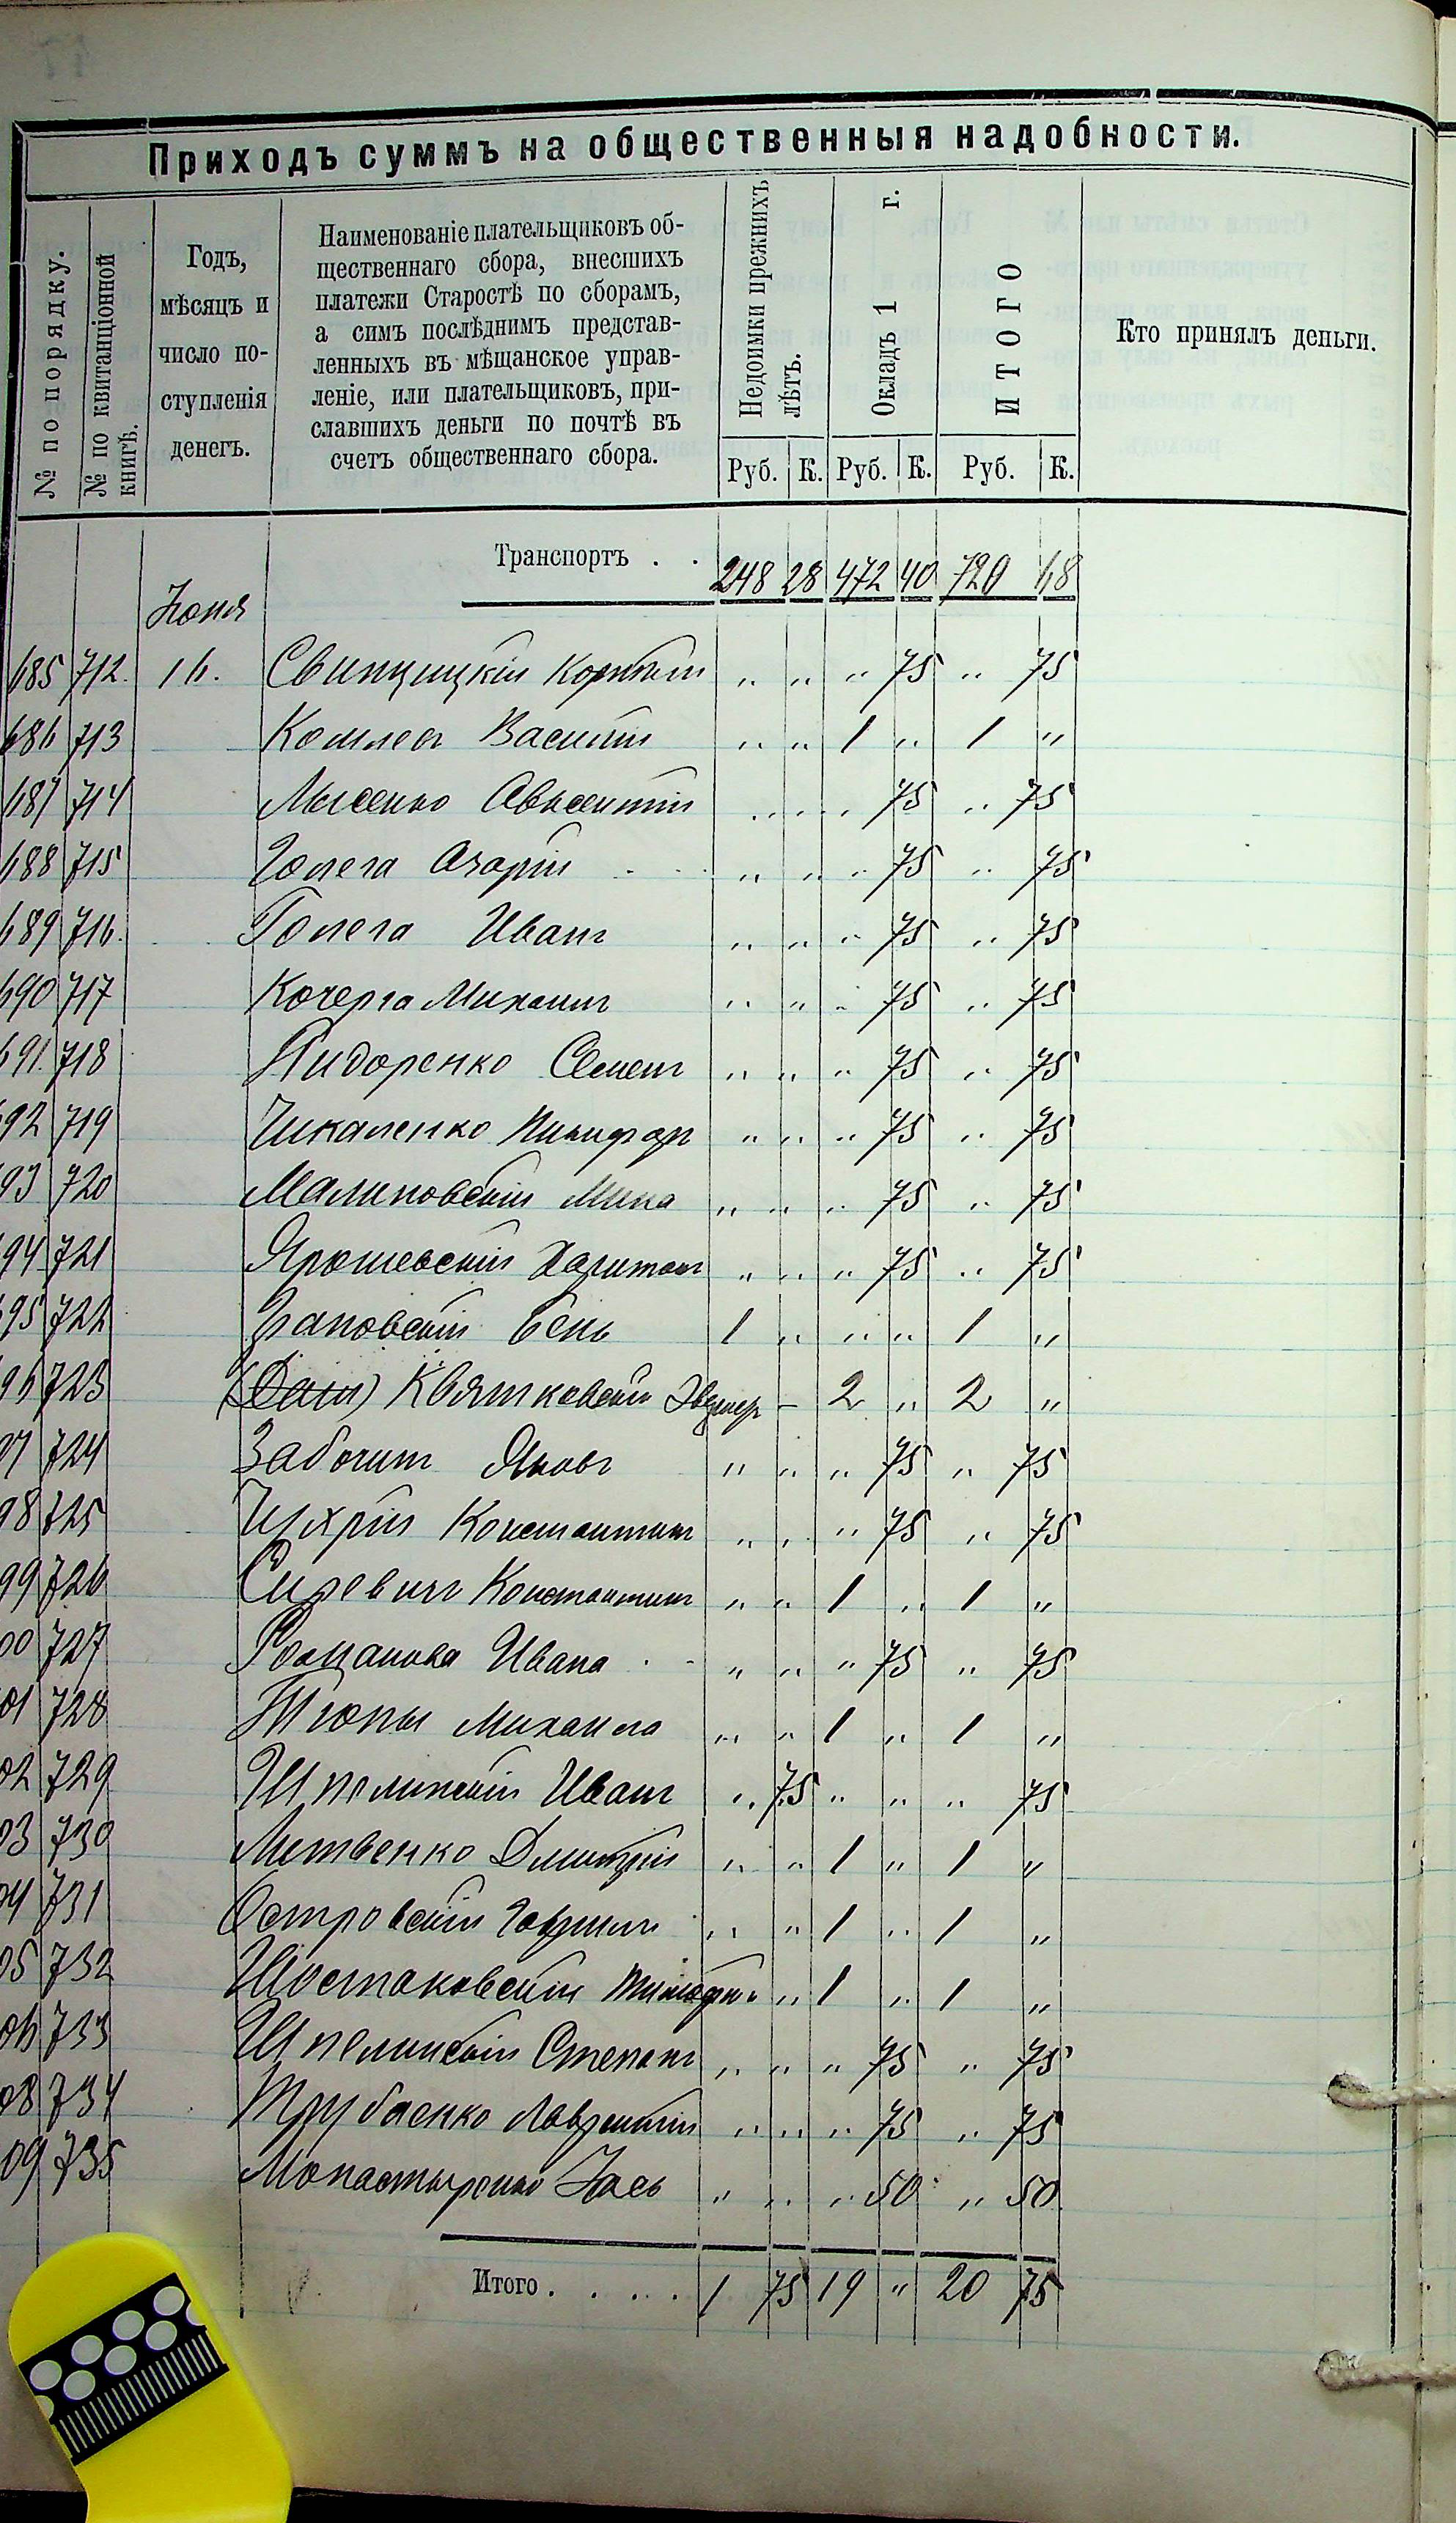 Приходъ суммъ на общественныя надобности.
№ по порядку.
№ по квитанціонной книгѣ.
Годъ,
мѣсяцъ и
число по-
ступленія
денегъ.
Наименованіе плательщиковъ об-
щественнаго сбора, внесшихъ
платежи Старостѣ по сборамъ,
а симъ послѣднимъ представ-
ленныхъ въ мѣщанское управ-
леніе, или плательщиковъ, при-
славшихъ деньги по почтѣ въ
счетъ общественнаго сбора.
Недоимки прежнихъ лѣтъ.
Окладъ 1 г.
ИТОГО
Кто принялъ деньги.
Руб. К. Руб. К. Руб. К.
Транспортъ . . 248 28 472 40 720 68
Іюня
685 712. 16. Свинцицкій " " " 75 " 75
686 713 Василій " " 1 " 1 "
687 714 Лысенко Авксентій " " " 75 " 75
688 715 Голега Азарій " " " 75 " 75
689 716. Голега Иванъ " " " 75 " 75
690 717 Кочерга Михаилъ " " " 75 " 75
691. 718 Сидоренко Семенъ " " " 75 " 75
92 719 Чикаленко Никифоръ " " " 75 " 75
93 720 Малиновскій Мина " " " 75 " 75
94 721 Ярошевскій Харитонъ " " " 75 " 75
95 722 1 " " " 1 "
96 723 Квятковскій – 2 " 2 "
97 724 Яковъ " " " 75 " 75
98 725 Константинъ " " " 75 " 75
99 726 Константинъ " " 1 " 1 "
00 727 Романова Ивана " " " 75 " 75
01 728 Михаила " " 1 " 1 "
02 729 Шполинскій Иванъ " 75 " " " 75
03 730 Литвенко Дмитрій " " 1 " 1 "
04 731 Островскій Гавріилъ " " 1 " 1 "
05 732 Шостаковскій Тимофей " " 1 " 1 "
06 733 Шполинскій Степанъ " " " 75 " 75
08 734 Трубаенко Лаврентій " " " 75 " 75
09 735 Монастырскій " " " 50 " 50
Итого . . . . . 1 75 19 " 20 75